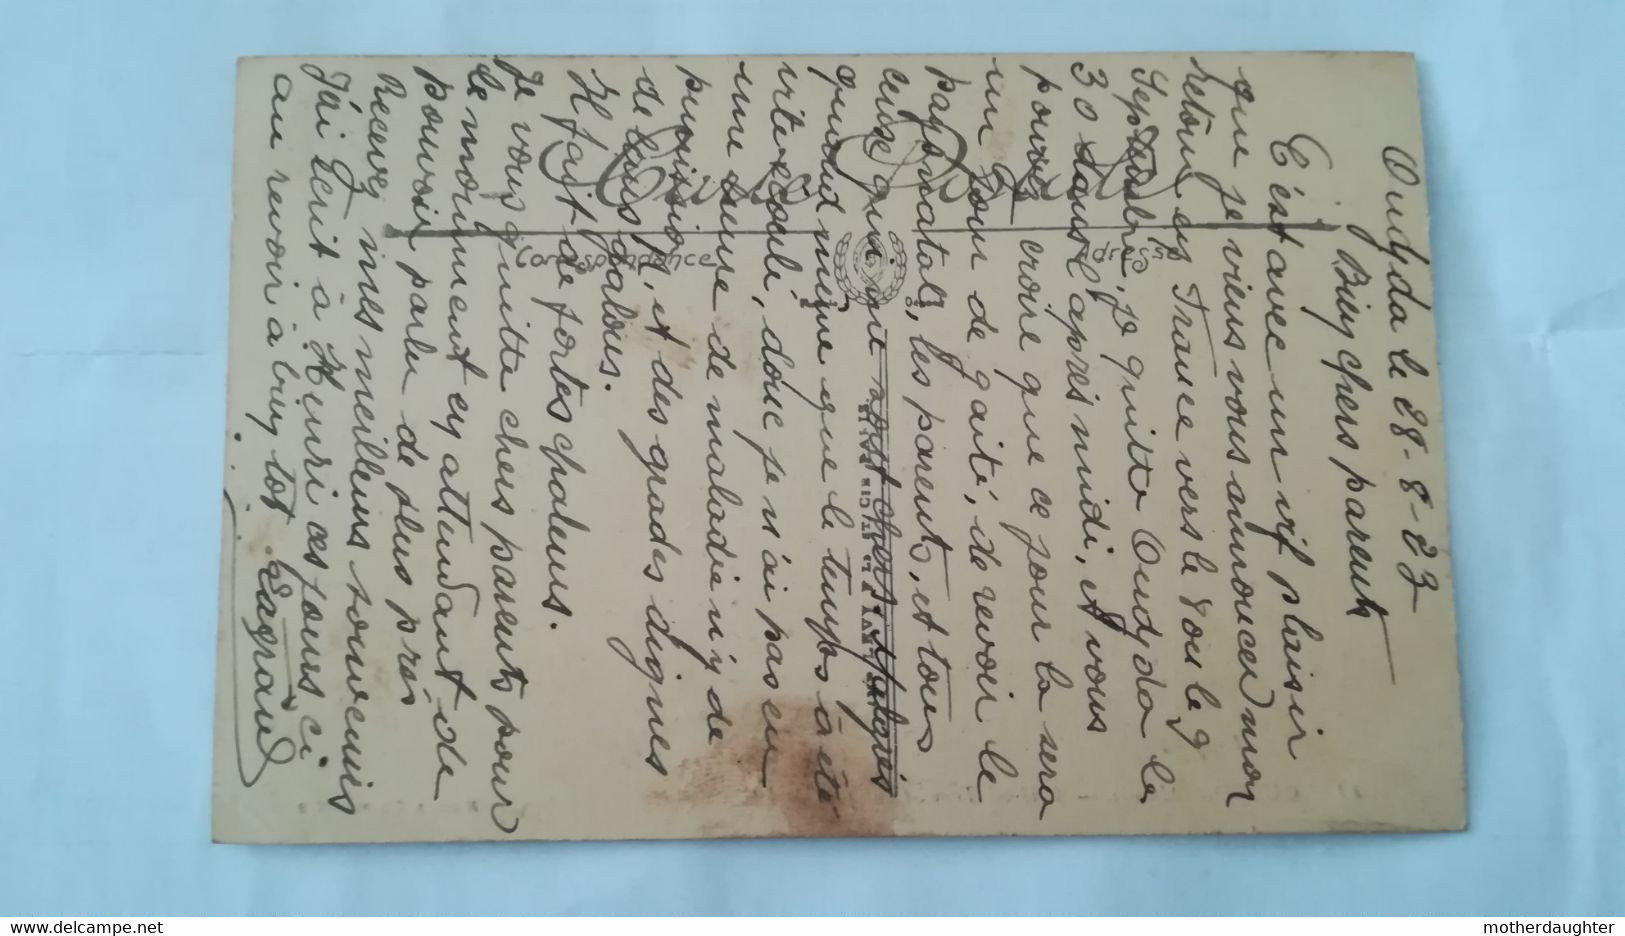 Oudjda le 28-8-23
Biens chers parents
C'est avec un vif plaisir
que je viens vous annoncer mon
retour en France vers le 8 ou le 9
Septembre, je quitte Oudjda le
30 dans l'après midi, et vous
pouvez croire que ce jour la sera
un jour de gaité, de revoir le
pays natal, les parents, et tous
ceux qui me sont chers. Malgrés
quand même que le temps à été
vite écoulé, donc je n'ai pas eu
une heure de maladie n'y de
punition, et des grades dignes
de leurs galons.
Il fait de fortes chaleurs.
Je vous quitte chers parents pour
le moment en attendant de
pouvoir parlu de plus prés
Recevez mes meilleurs souvenirs
J'ai Ecrit à Henri ces jours ci
au revoir à bien tot
Carte Postale
Correspondance
Adresse
motherdaughter
delcampe.net